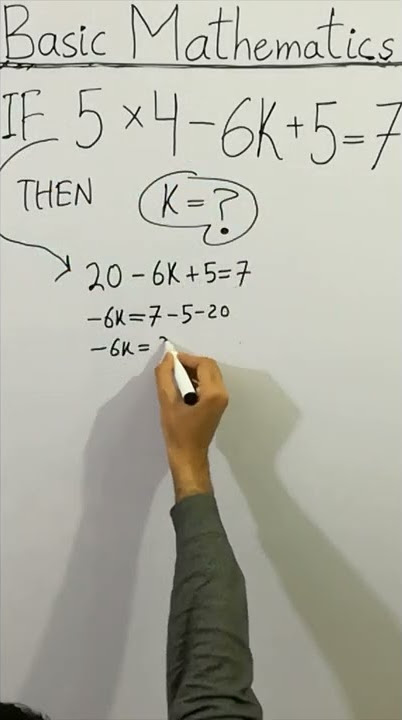 Basic Mathematics
IF 5 × 4 - 6K + 5 = 7
THEN K = ?
20 - 6K + 5 = 7
-6K = 7 - 5 - 20
-6K =